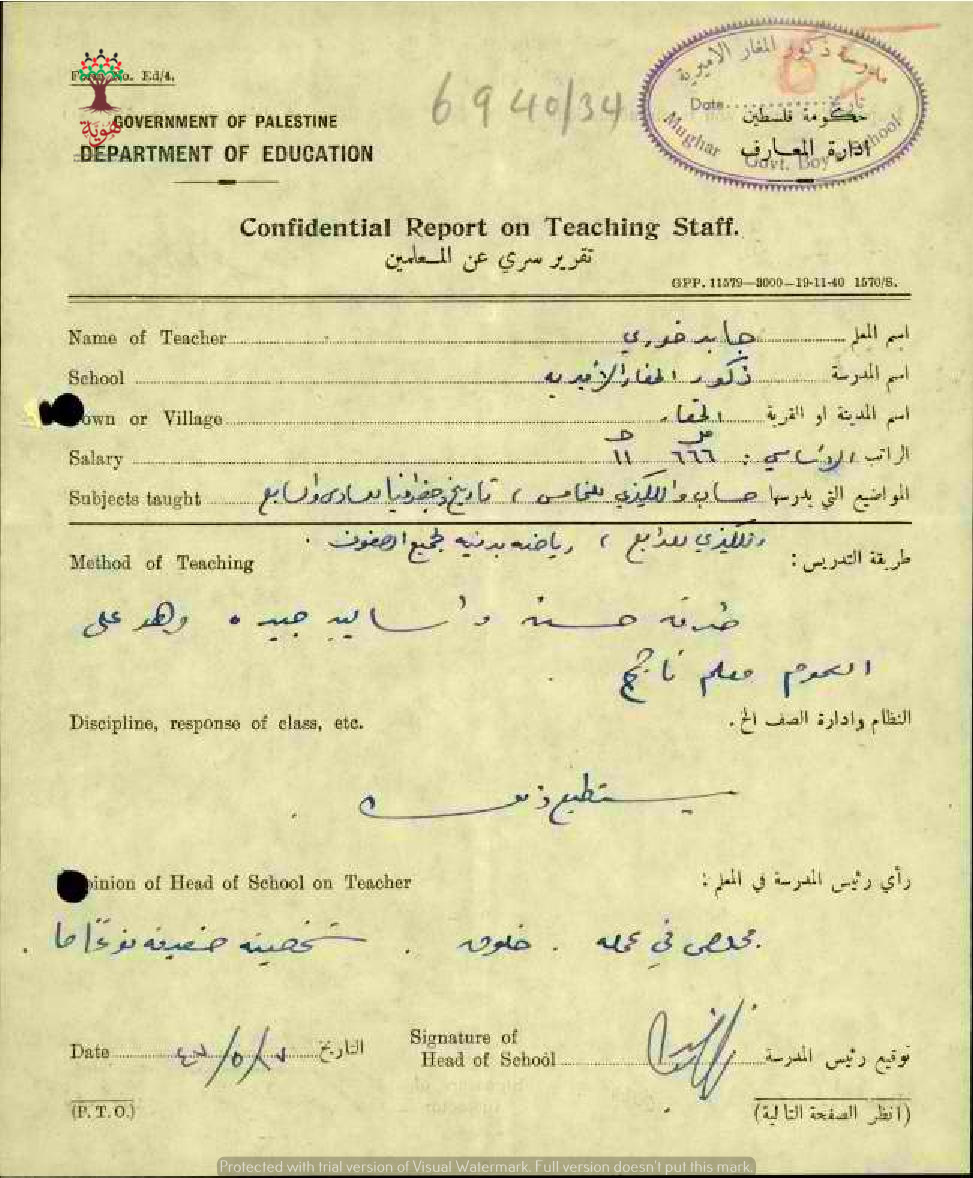 Form No. Ed/4.
هوية
GOVERNMENT OF PALESTINE
DEPARTMENT OF EDUCATION
6940/34
مدرسة ذكور المغار الاميرية
Date تاريخ
حكومة فلسطين
ادارة المعارف
Mughar Govt. Boy's School
Confidential Report on Teaching Staff.
تقرير سري عن المعلمين
GPP. 11579—3000—19-11-40 1570/S.
Name of Teacher خوري اسم المعلم
School ذكور المغار الأميرية اسم المدرسة
Town or Village المغار اسم المدينة او القرية
Salary ١١ ٦٦٦ : الأساسي الراتب
Subjects taught المواضيع التي يدرسها حساب وانكليزي للخامس ، تاريخ وجغرافيا للسادس والسابع
وانكليزي للرابع ، رياضة بدنية لجميع الصفوف .
Method of Teaching طريقة التدريس :
طرقه حسنة وأساليبه جيدة . وهو على
العموم معلم ناجح
Discipline, response of class, etc. النظام وادارة الصف الخ .
يستطيع ذلك
Opinion of Head of School on Teacher رأي رئيس المدرسة في المعلم :
مخلص في عمله . خلوق . شخصيته ضعيفة نوعًا ما .
Date ٤٧/٥/١٧ التاريخ
Signature of
Head of School توقيع رئيس المدرسة
(P. T. O.) (انظر الصفحة التالية)
Protected with trial version of Visual Watermark. Full version doesn't put this mark.